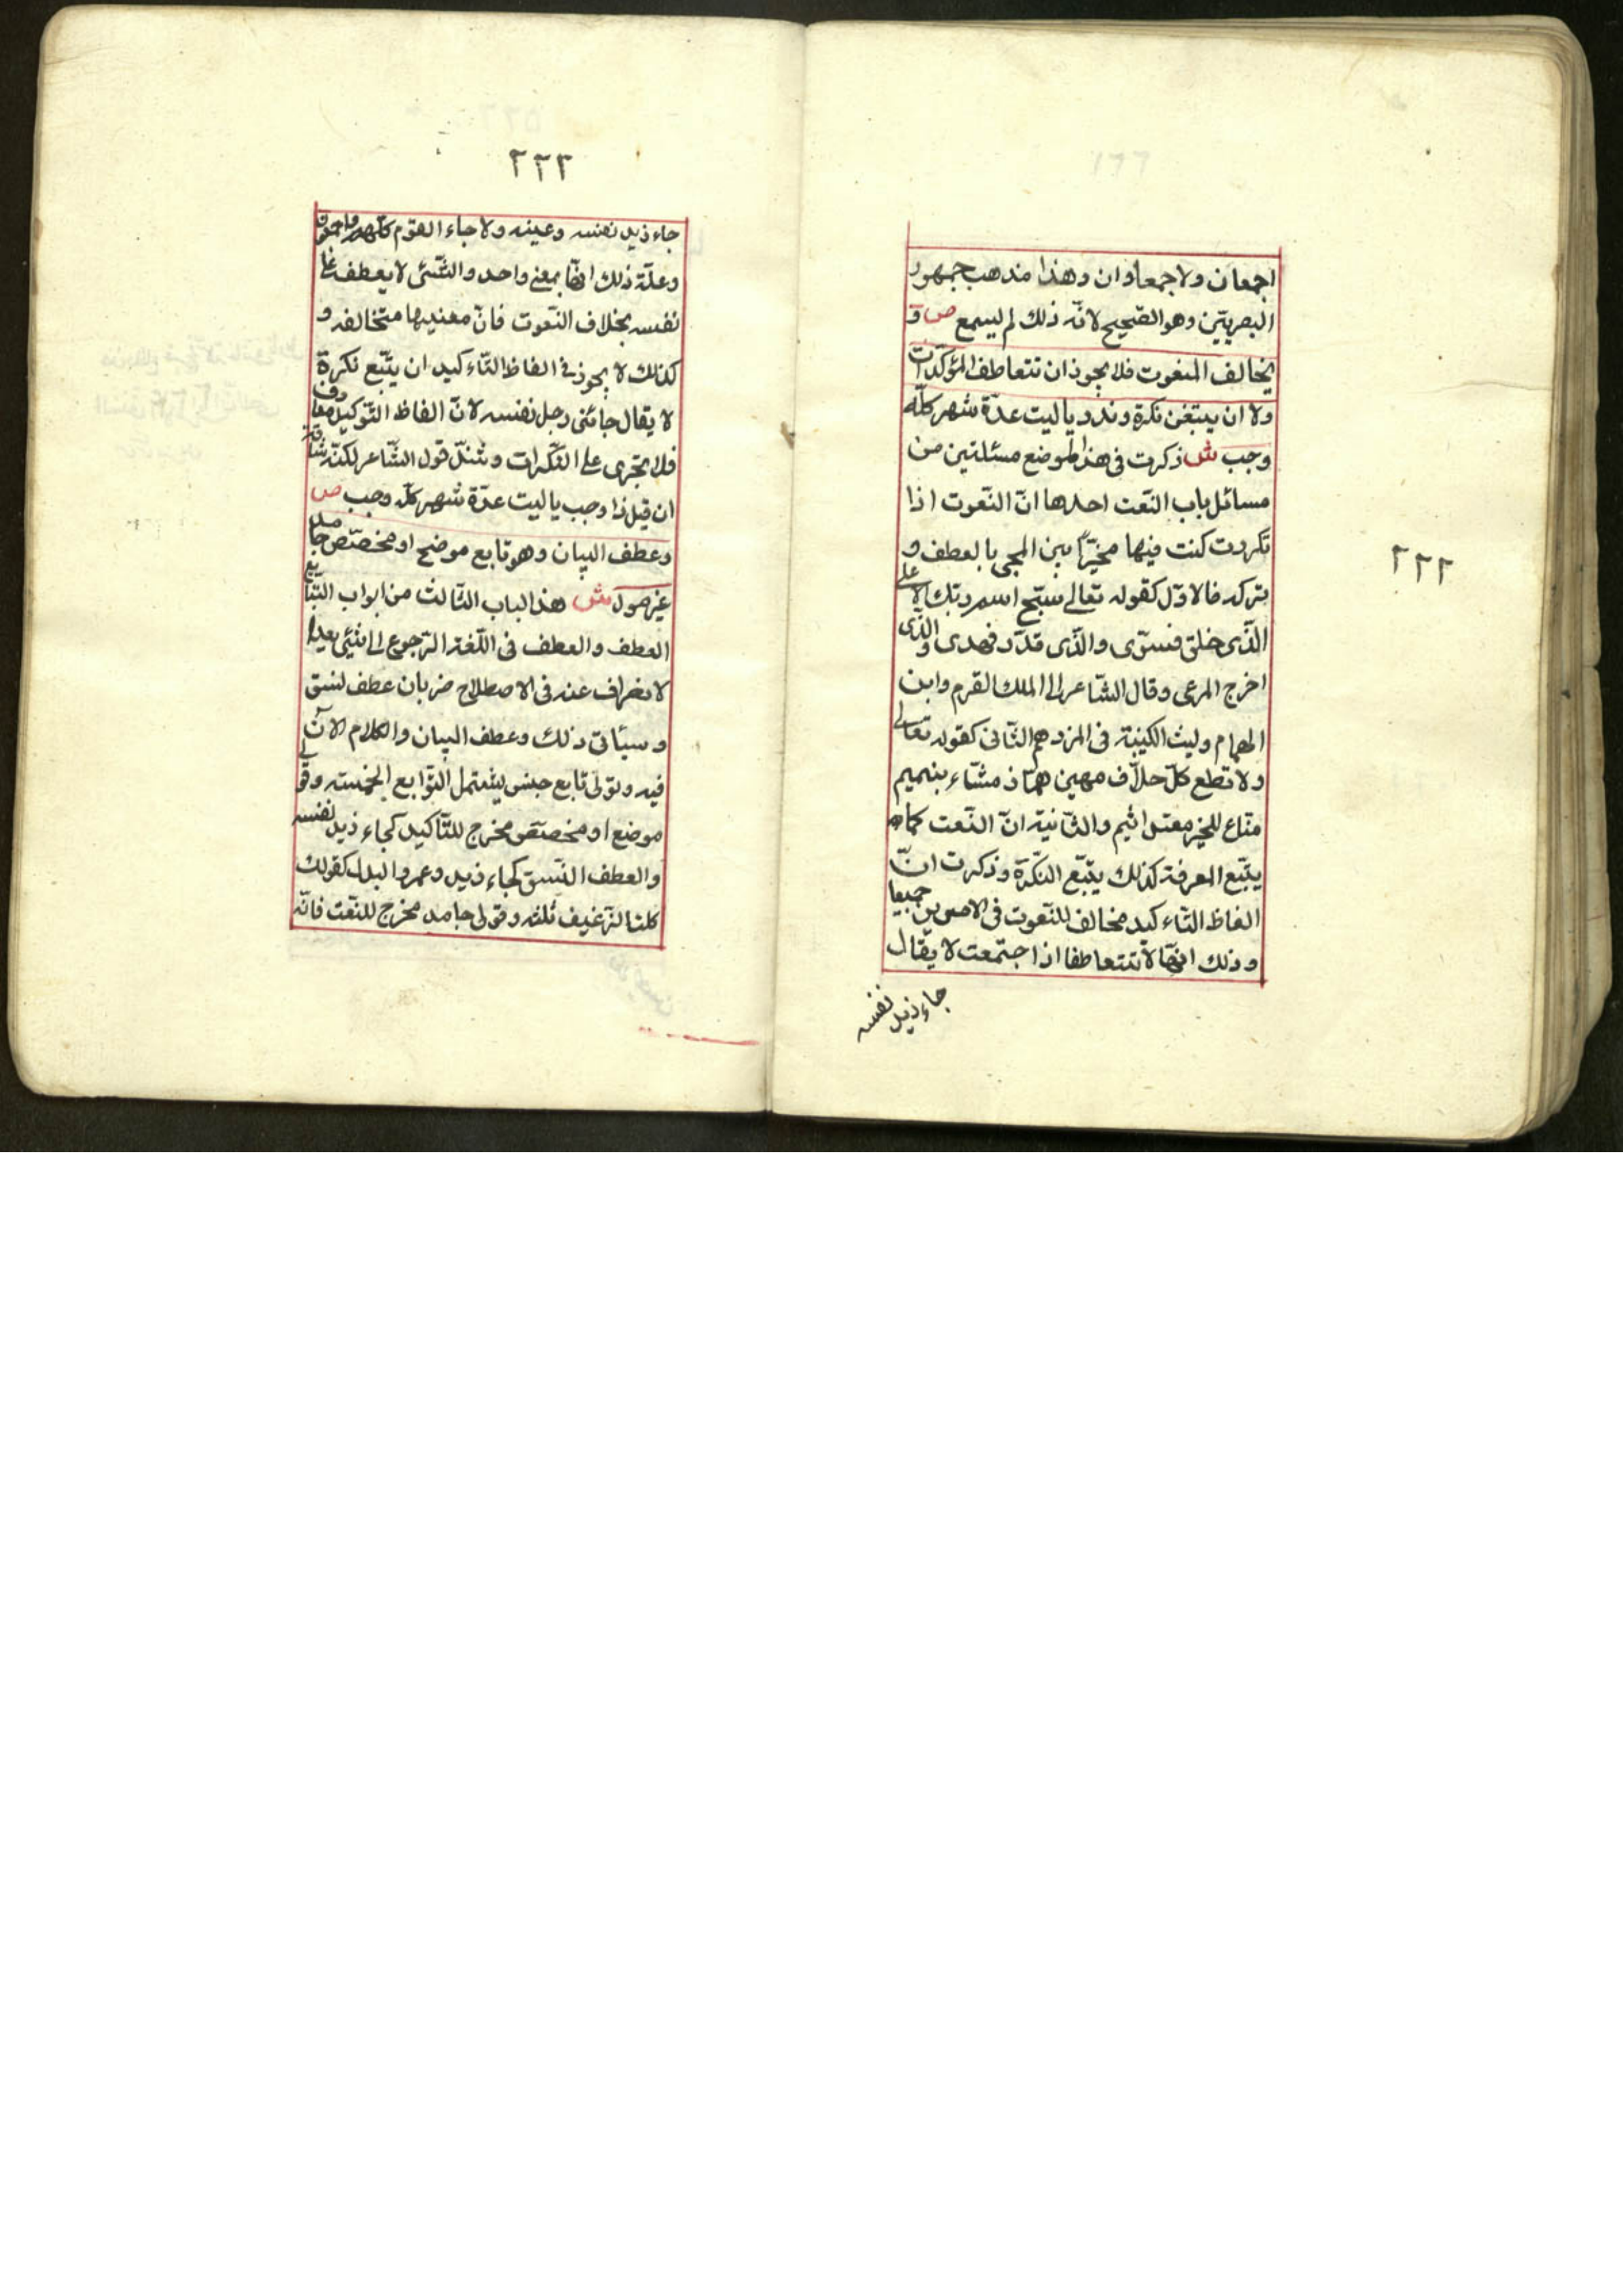 ٢٢٢
اجمعان ولا جمعاوان وهذا مذهب جمهور
البصريّين وهو الصّحيح لانّه ذلك لم يسمع ص و
يخالف المنعوت فلا يجوز ان تتعاطف المؤكّدات
ولا ان يتبعن نكرة وندر يا ليت عدّة شهر كلّه
رجب ش ذكرت فى هذا الموضع مسئلتين من
مسائل باب النّعت احدها انّ النّعوت اذا
تكررت كنت فيها مخيّراً بين المجى بالعطف و
بتركه فالاوّل كقوله تعالى سبّح اسم ربّك الاعلى
الّذى خلق فسوّى والّذى قدّر فهدى والّذى
اخرج المرعى وقال الشّاعر الى الملك القرم وابن
الهمام وليث الكتيبة فى المزدهم الثّانى كقوله تعالى
ولا تطع كلّ حلّاف مهين همّاز مشّاء بنميم
منّاع للخير معتد اثيم والثّانية انّ النّعت كما
يتّبع المعرفة كذلك يتّبع النّكرة وذكرت انّ
الفاظ التّاءكيد مخالف للنّعوت فى الامرين جميعا
وذلك انّها لا تتعاطفا اذا جتمعت لا يقال
جاء زيد نفسه
٢٢٣
جاء زيد نفسه وعينه ولا جاء القوم كلّهم واجمعون
وعلّة ذلك انّها بمعنى واحد والشّئ لا يعطف على
نفسه بخلاف النّعوت فانّ معنيها متخالفه و
كذلك لا يجوز فى الفاظ التّاءكيد ان يتّبع نكرة
لا يقال جائنى رجل نفسه لانّ الفاظ التّوكيد معارف
فلا تجرى على النّكرات وشذّ قول الشّاعر لكنّه شاقه
ان قيل ذا رجب يا ليت عدّة شهر كلّه رجب ص
وعطف البيان وهو تابع موضح او مخصّص جامد
غير مول ش هذا الباب الثّالث من ابواب التّبايع
العطف والعطف فى اللّغة الرّجوع الى شئى بعد
لانصراف عنه فى الاصطلاح ضربان عطف نسق
وسيأتى ذلك وعطف البيان والكلام الآن
فيه وقولى تابع جنس يشتمل التّوابع الخمسة وقولى
موضع او مخصّص مخرج للتّاكيد كجاء زيد نفسه
والعطف النّسق كجاء زيد وعمر والبدل كقولك
كلت الرّغيف ثلثه وقولى جامد مخرج للنّعت فانّه